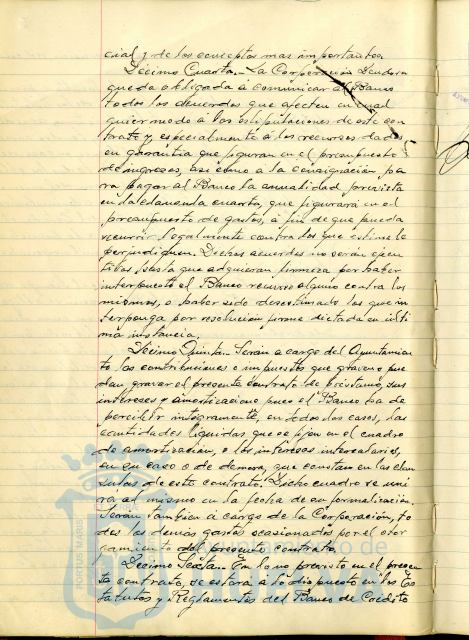 cial y de los conceptos mas importantes
Décimo Cuarta.- La Corporación Deudora
queda obligada a comunicar al Banco
todos los acuerdos que afecten en cual
quier modo a las estipulaciones de este con
trato y especialmente a los recursos dados
en garantía que figuran en el presupuesto
de ingresos, asi como a la consignación pa
ra pagar al Banco la anualidad prevista
en la clausula cuarta, que figurará en el
presupuesto de gastos, a fin de que pueda
recurrir legalmente contra los que estime le
perjudiquen. Dichos acuerdos no serán ejecu
tivos hasta que adquieran firmeza por haber
interpuesto el Banco recurso alguno contra los
mismos, o haber sido desestimado los que in
terponga por resolución firme dictada en últi
ma instancia.
Décimo Quinta.- Serán a cargo del Ayuntamien
to las contribuciones e impuestos que graven o pue
dan gravar el presente contrato de préstamo, sus
intereses y amortizaciones pues el Banco ha de
percibir integramente, en todos los casos, las
cantidades líquidas que se fijen en el cuadro
de amortización, o los intereses intercalarios,
en su caso o de demora, que constan en las clau
sulas de este contrato. Dicho cuadro se uni
rá al mismo en la fecha de su formalización.
Serán tambien a cargo de la Corporación, to
dos los demas gastos ocasionados por el otor
gamiento del presente contrato.
Décimo Sexta.- En lo no previsto en el presen
te contrato, se estará a lo dispuesto en los Es
tatutos y Reglamentos del Banco de Crédito
PORTUS MARIS
Ayuntamiento de